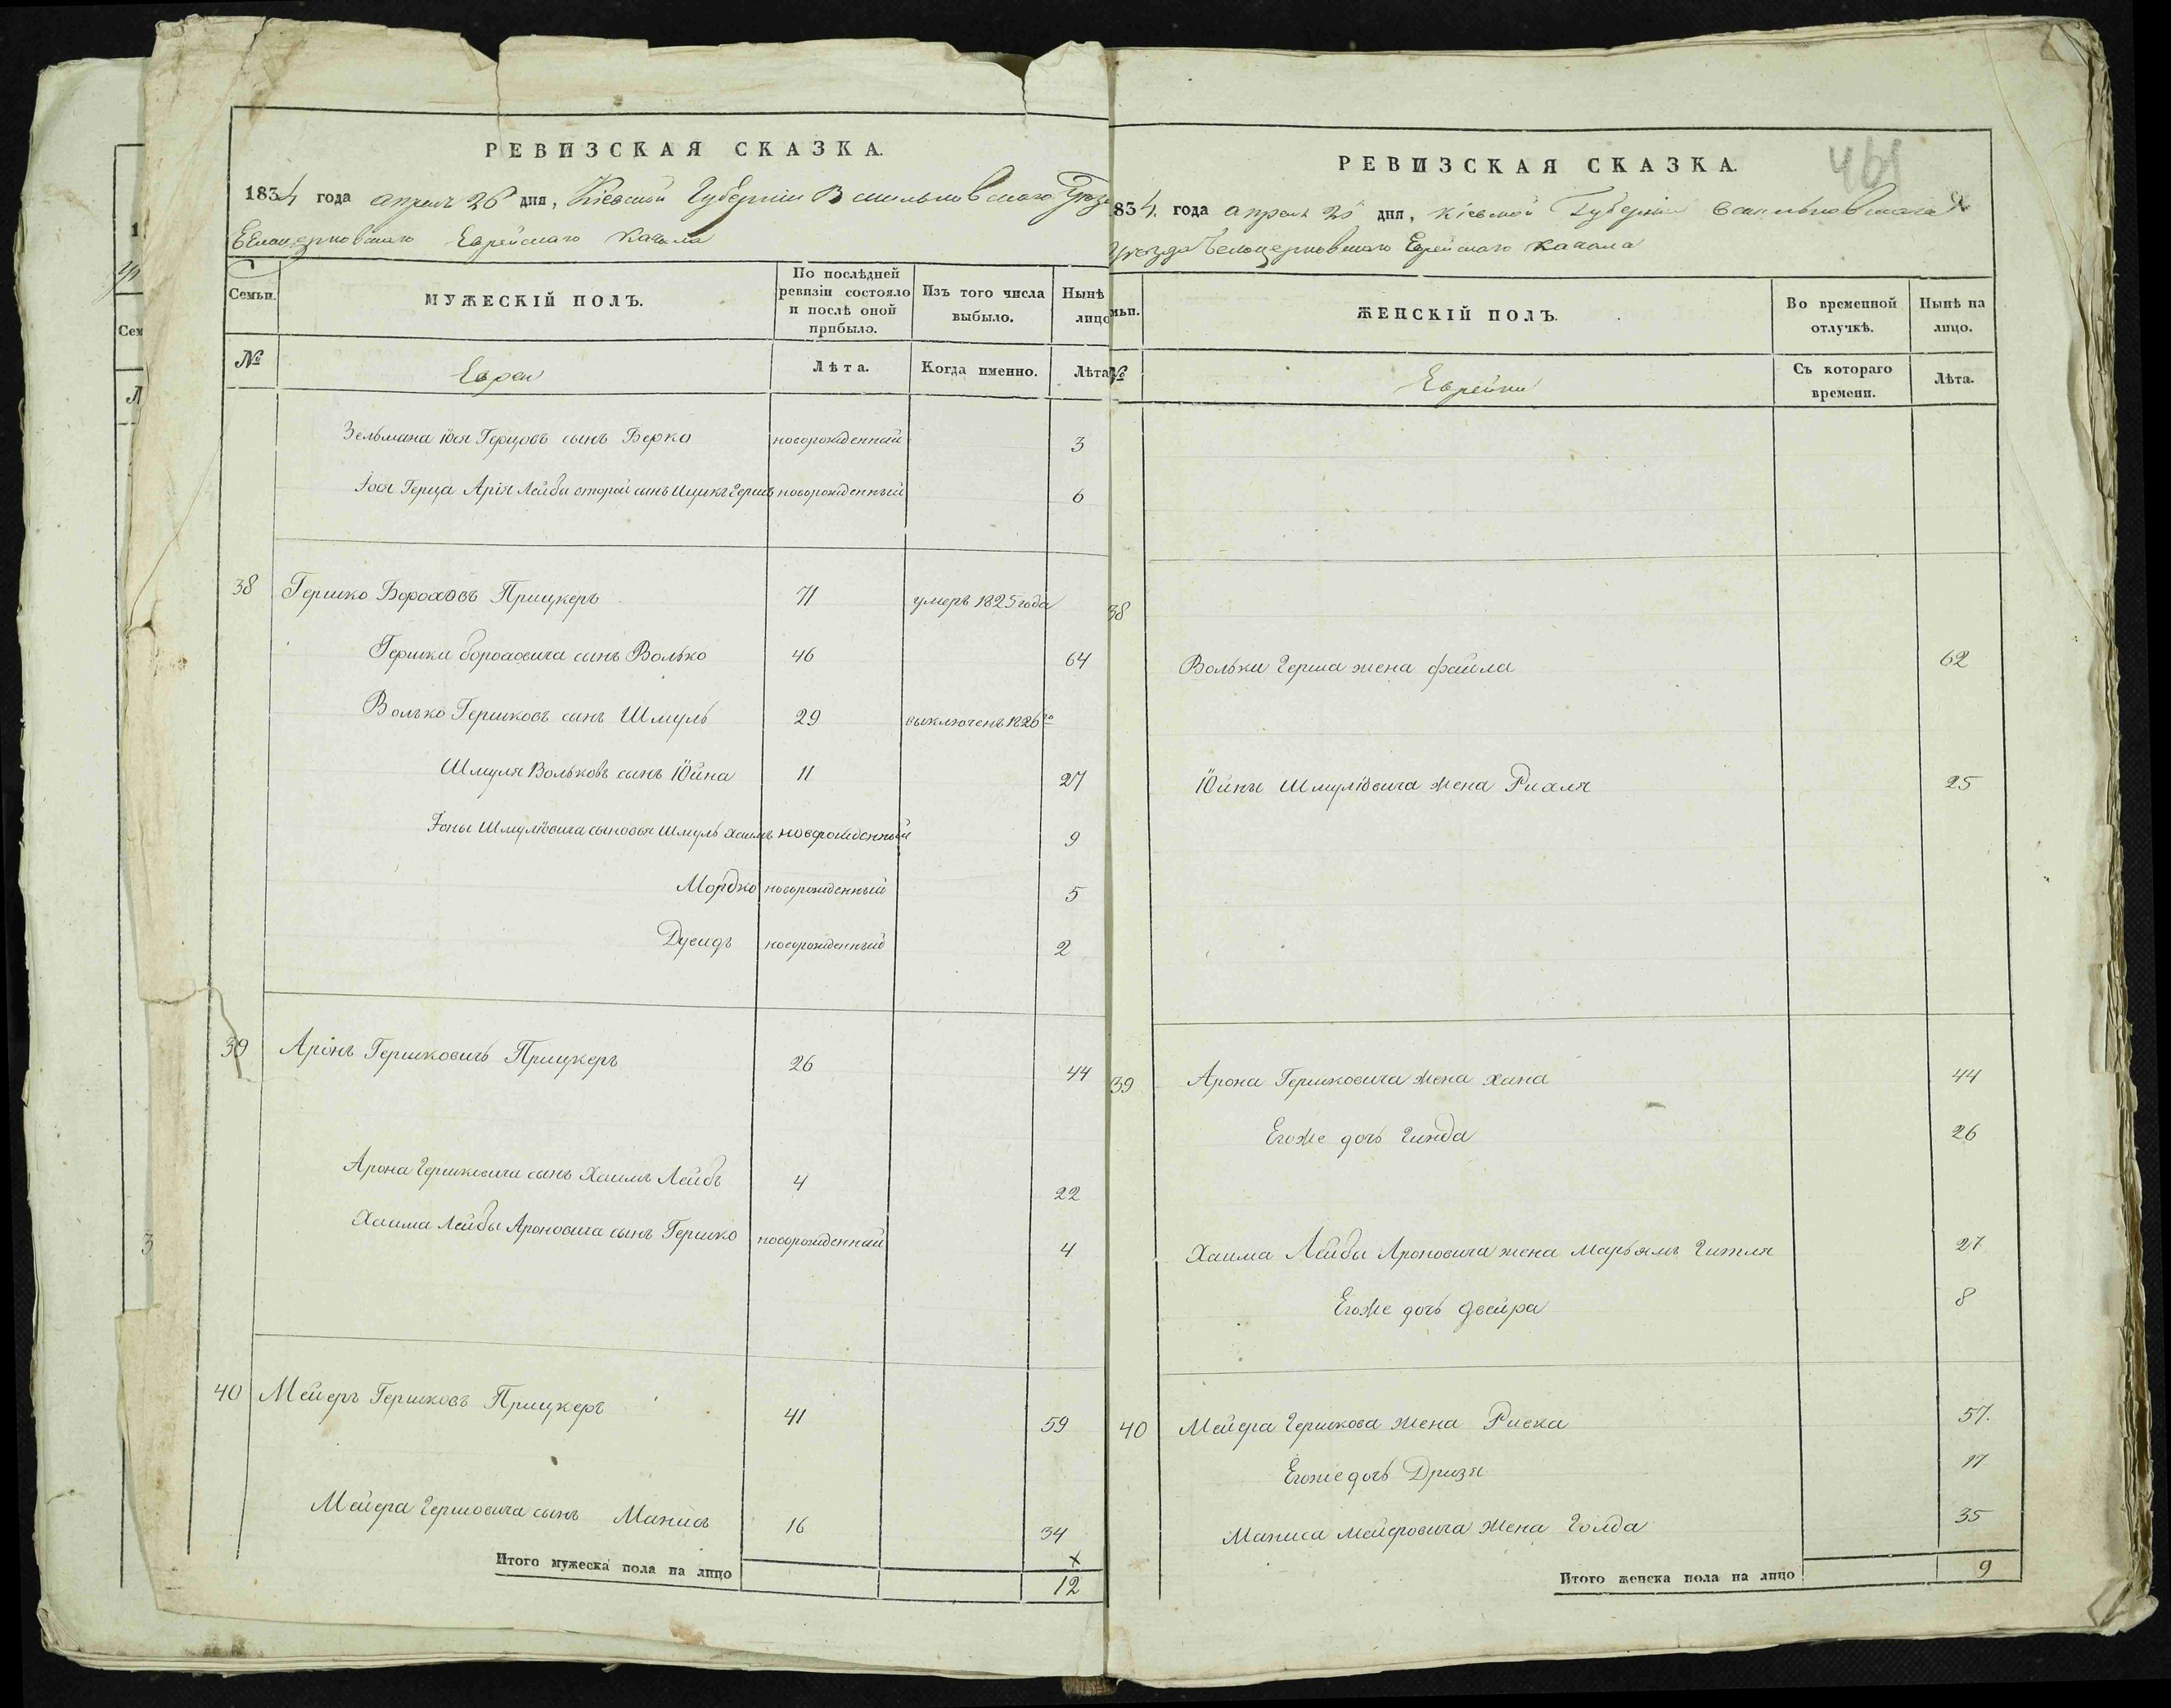 РЕВИЗСКАЯ СКАЗКА.
1834 года апреля 26 дня, Кіевской Губерніи Васильковского Уезд
Белоцерковского Еврейского Кагала
Семьи.
МУЖЕСКІЙ ПОЛЪ.
По послѣдней ревизіи состояло и послѣ оной прибыло.
Изъ того числа выбыло.
Нынѣ лицо
№
Евреи
Лѣта.
Когда именно.
Лѣта
Зельмана Іося Герцовъ сынъ Берко новорожденный 3
Іося Герца Арія Лейбы второй сынъ Ицикъ Гершъ новорожденный 6
38 Гершко Бороховъ Прицкеръ 71 умеръ 1825 года
Гершки Бороховича сынъ Волько 46 64
Волько Гершковъ сынъ Шмуль 29 выключенъ 1826го
Шмуля Вольковъ сынъ Іойна 11 27
Іоны Шмулёвича сыновья Шмуль Хаимъ новорожденный 9
Мордко новорожденный 5
Дувидъ новорожденный 2
39 Аронъ Гершковичъ Прицкеръ 26 44
Арона Гершковича сынъ Хаимъ Лейбъ 4 22
Хаима Лейбы Ароновича сынъ Гершко новорожденный 4
40 Мейеръ Гершковъ Прицкеръ 41 59
Мейера Гершовича сынъ Манисъ 16 34
x
Итого мужеска пола на лицо 12
461
РЕВИЗСКАЯ СКАЗКА.
834. года апреля 25 дня, Кіевской Губерніи Васильковскага
Уезда Белоцерковскаго Еврейскаго Кагала
мьи.
ЖЕНСКІЙ ПОЛЪ.
Во временной отлучкѣ.
Нынѣ на лицо.
№
Еврейки
Съ котораго времени.
Лѣта.
38
Вольки Герша жена Файла 62
Іойны Шмулёвича жена Рихля 25
39 Арона Гершковича жена Хана 44
Егоже дочь Гинда 26
Хаима Лейбы Ароновича жена Марьямъ Гитля 27
Егоже дочь Двейра 8
40 Мейера Гершкова жена Ривка 57.
Егоже дочь Дризя 17
Маниса Мейеровича жена Голда 35
Итого женска пола на лицо 9